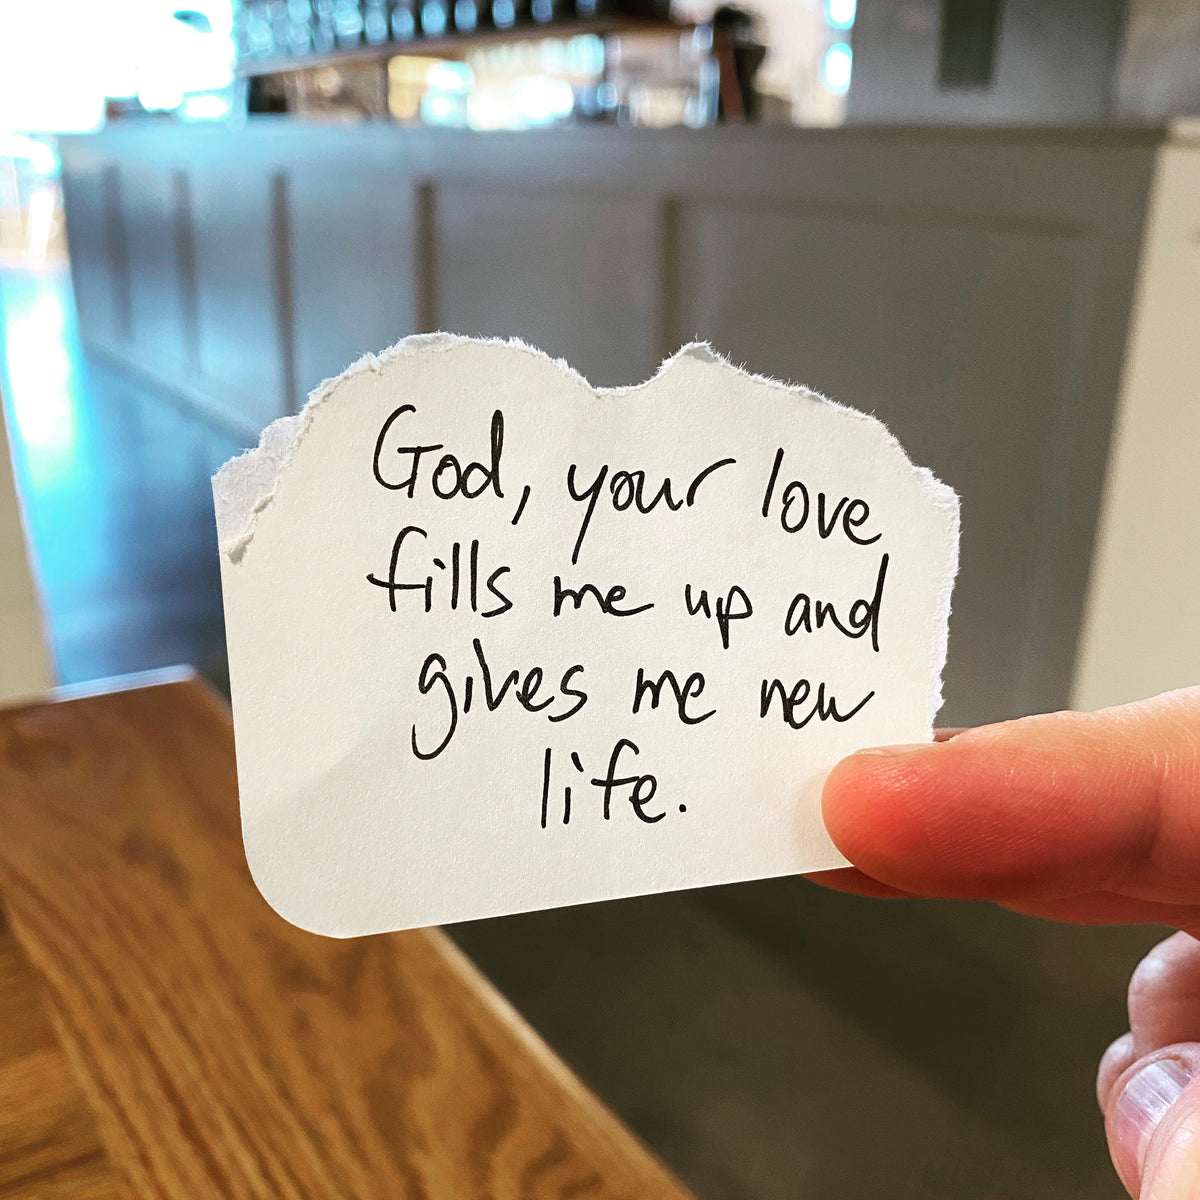 God, your love
fills me up and
gives me new
life.